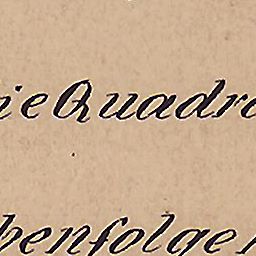 ie Quadra
benfolge